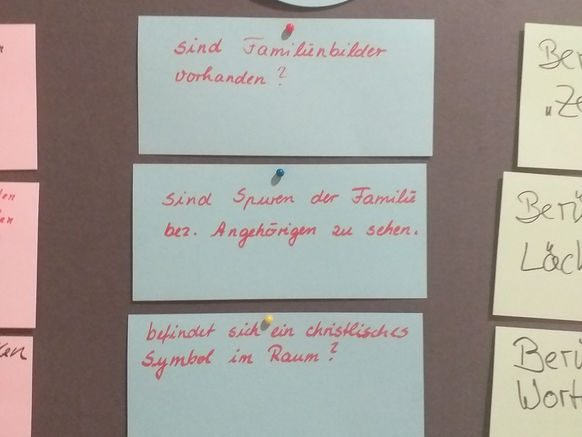 sind Familienbilder
vorhanden?
sind Spuren der Familie
bez. Angehörigen zu sehen.
befindet sich ein christlisches
Symbol im Raum?
Wort